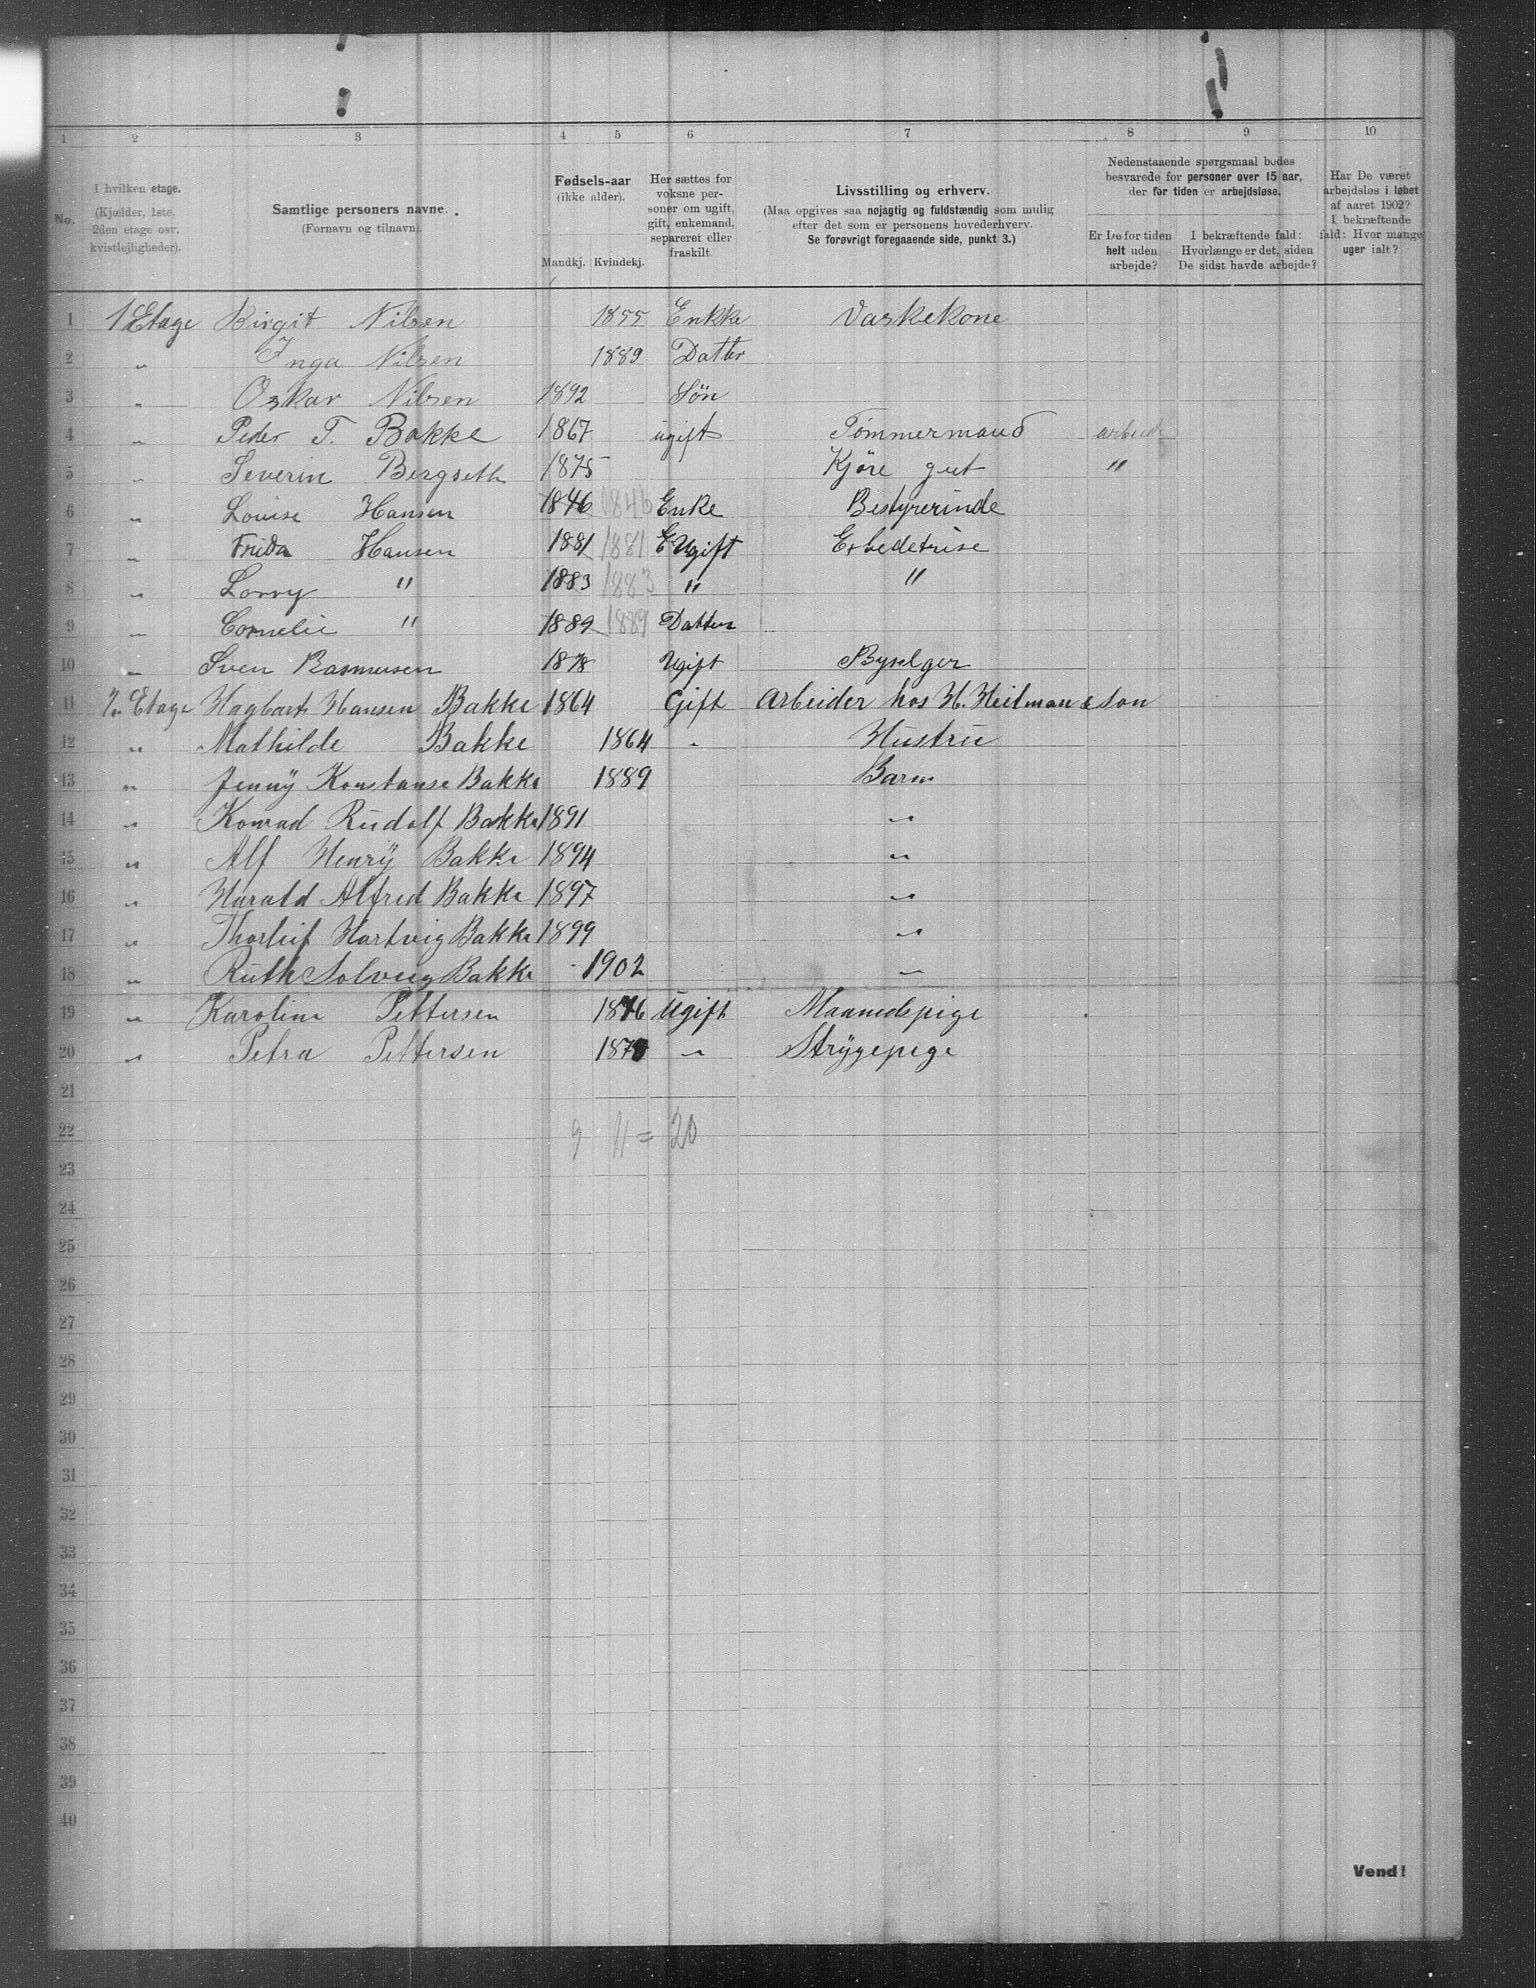 1 2 3 4 5 6 7 8 9 10
No.
I hvilken etage. (Kjælder, 1ste, 2den etage osv. kvistlejligheder).
Samtlige personers navne. (Fornavn og tilnavn).
Fødsels-aar (ikke alder). Mandkj. Kvindekj.
Her sættes for voksne personer om ugift, gift, enkemand, separeret eller fraskilt.
Livsstilling og erhverv. (Maa opgives saa nøjagtig og fuldstændig som mulig efter det som er personens hovederhverv. Se forøvrigt foregaaende side, punkt 3.)
Nedenstaaende spørgsmaal bedes besvarede for personer over 15 aar, der for tiden er arbejdsløse.
Er De for tiden helt uden arbejde?
I bekræftende fald: Hvorlænge er det, siden De sidst havde arbejde?
Har De været arbejdsløs i løbet af aaret 1902? I bekræftende fald: Hvor mange uger ialt?
1 1 Etage Birgit Nilsen 1855 Enkke Vaskekone
2 " Inga Nilsen 1889 Datter
3 " Oskar Nilsen 1892 Søn
4 " Peder T. Bakke 1867 ugift Tømmermand arbeide
5 " Severin Bergseth 1875 Kjøre gut "
6 " Louise Hansen 1846 1846 Enke Bestyrerinde
7 " Frida Hansen 1881 1881 E Ugift Exbedetrise
8 " Lovvy " 1883 1883 " "
9 " Cornelie " 1889 1889 Datter
10 " Sven Rasmusen 1878 Ugift Byselger
11 2. Etage Hagbart Hansen Bakke 1864 Gift Arbeider hos H. Heitman & Son
12 " Mathilde Bakke 1864 " Hustru
13 " Jenny Konstanse Bakke 1889 Barn
14 " Konrad Rudolf Bakke 1891 "
15 " Alf Henry Bakke 1894 "
16 " Harald Alfred Bakke 1897 "
17 " Thorleif Hartvig Bakke 1899 "
18 " Ruth Solveig Bakke 1902 "
19 " Karoline Pettersen 1876 Ugift Maanedspige
20 " Petra Pettersen 187 " Strygepige
21
22 9 11 = 20
23
24
25
26
27
28
29
30
31
32
33
34
35
36
37
38
39
40
Vend!